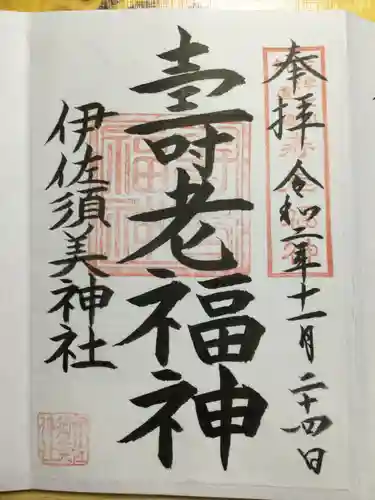 奉拝 令和二年十一月二十四日
壽老福神
伊佐須美神社